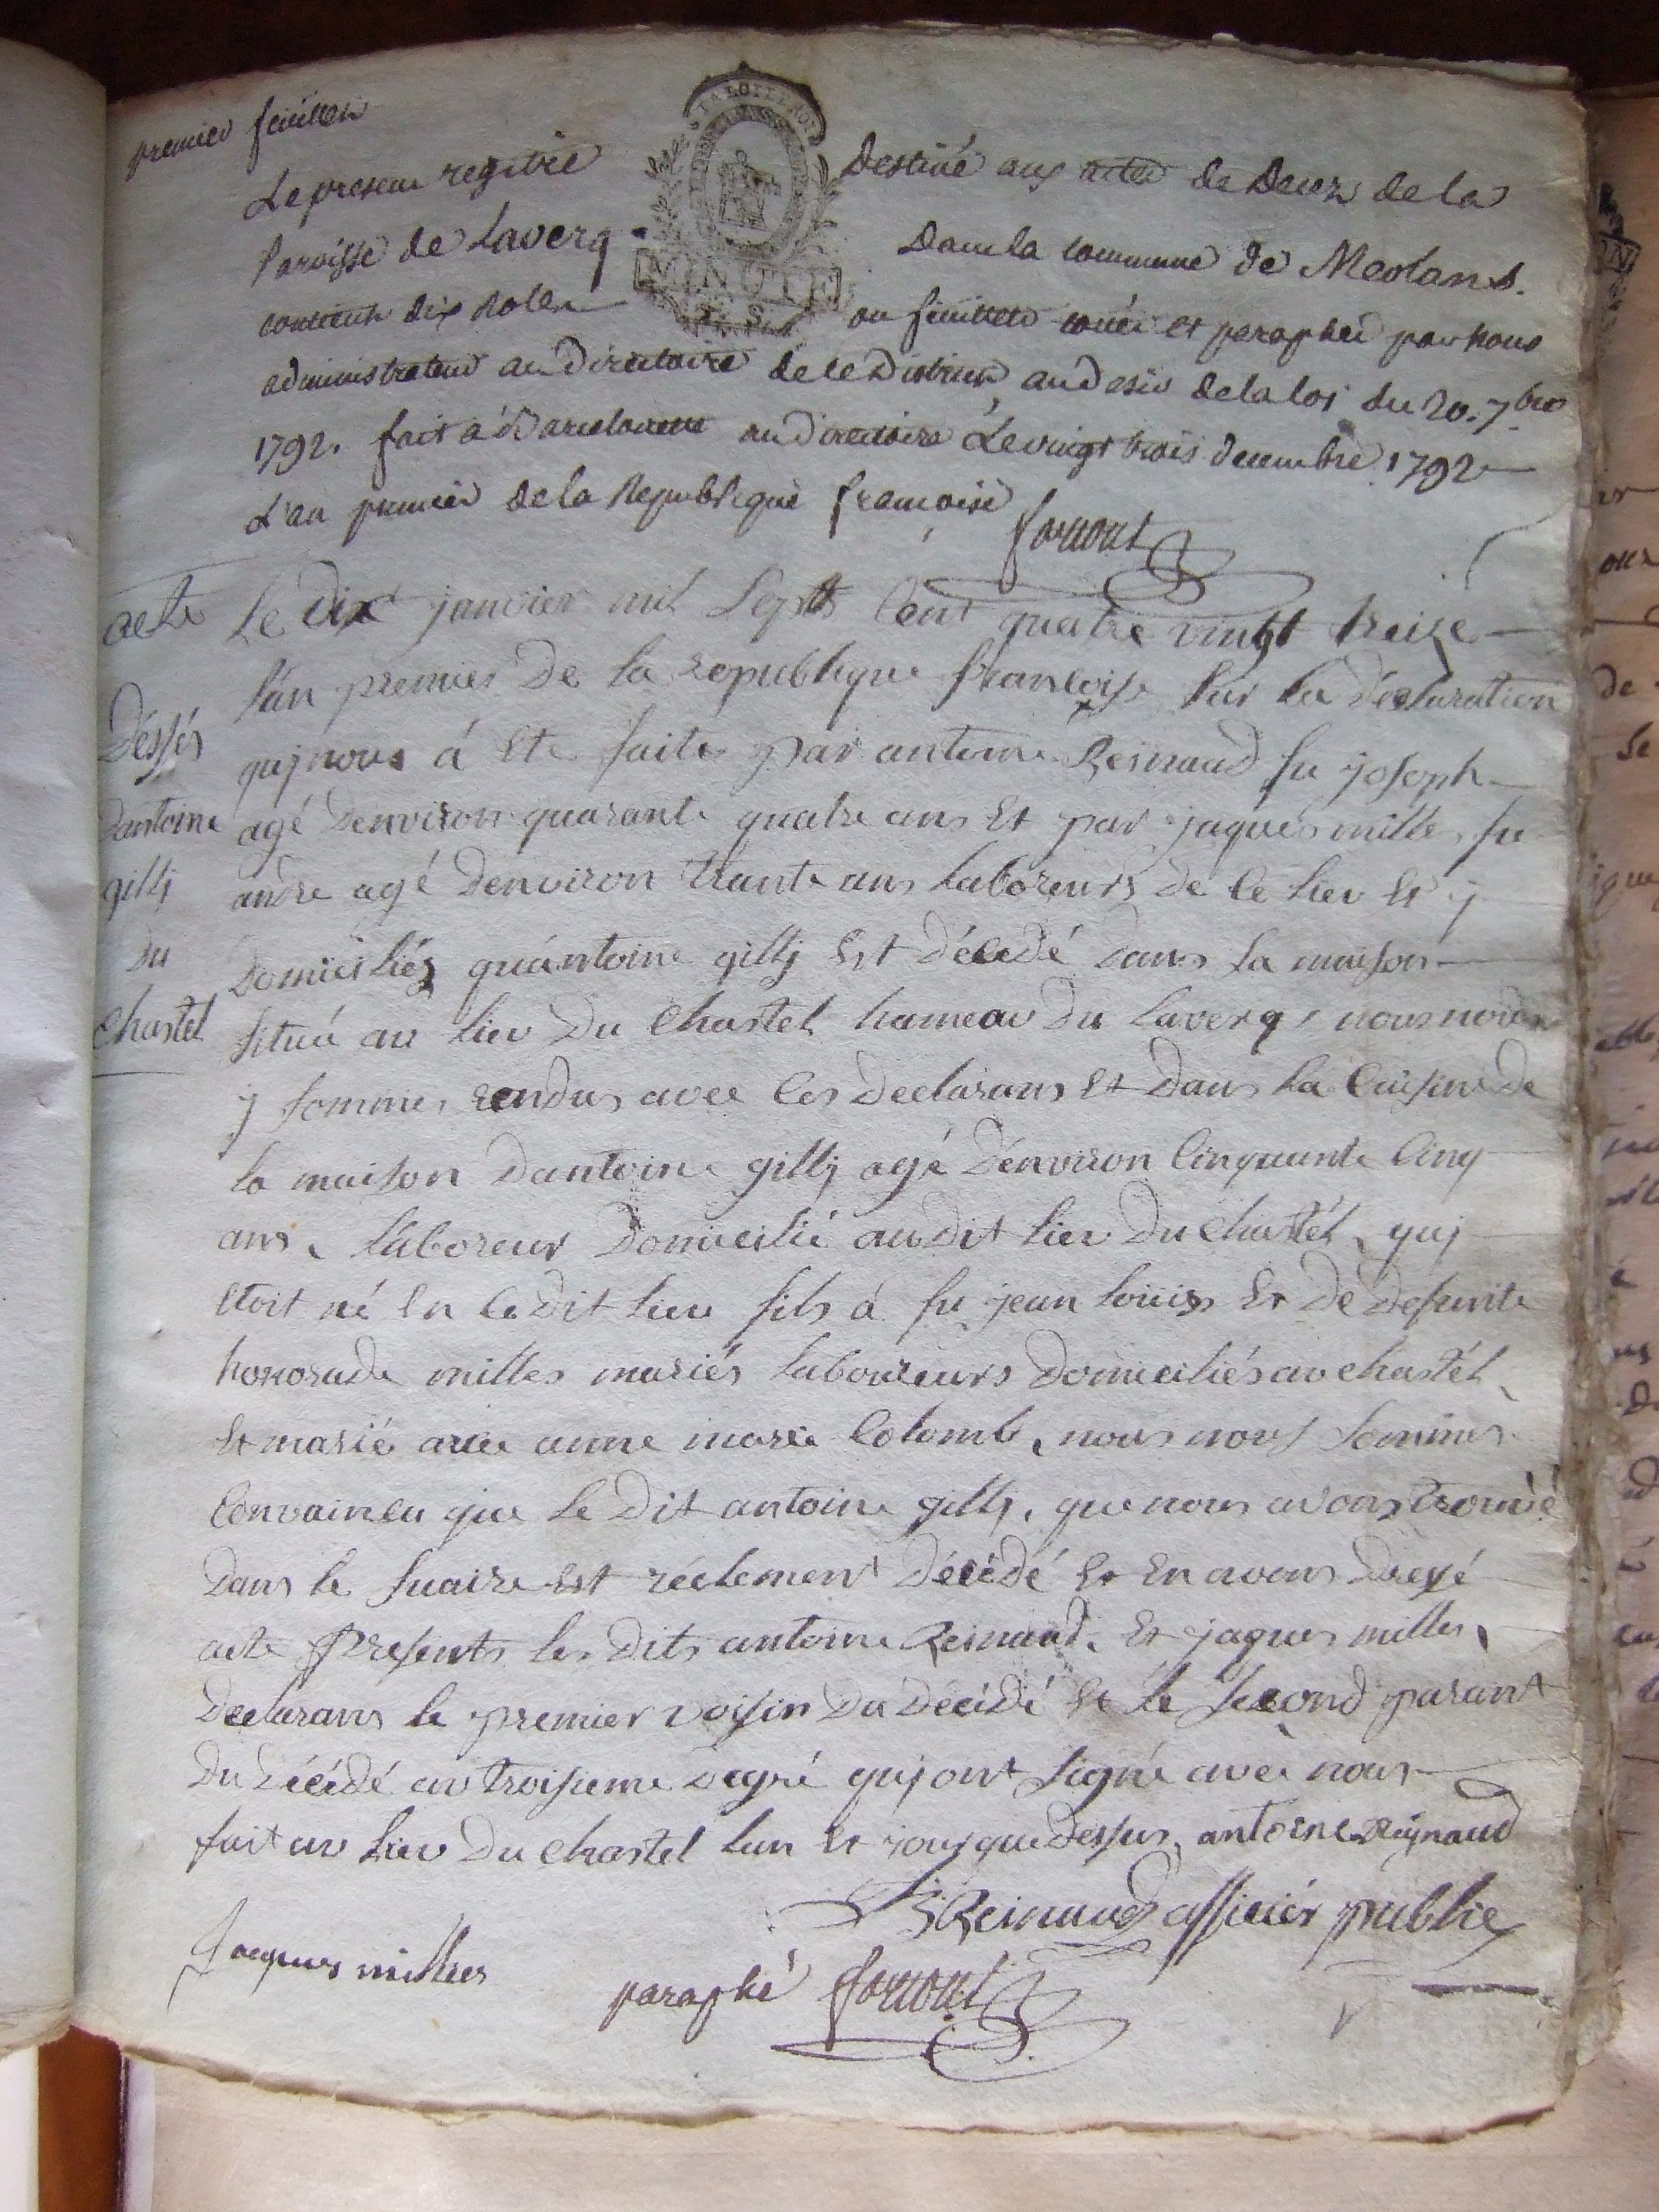 premier feuillet
Le present registre destiné aux actes de Deces de la
Paroisse de Laverq Dans la commune de Meolans.
contient dix rolles ou feuillets cottés et paraphés par nous
administrateur au Directoire de ce District, au desir de la loi du 20. 7bre
1792. fait à Barcelonette au directoire Le vingt trois decembre 1792
L'an premier de la Republique françoise
LA LOI ET LE ROI
MINUTE
S.
acte
Déssés
Dantoine
gillj
Du
Chastel
Le dix janvier mil Sept Cent quatre vingt treize
l'an premier De la republique francoise Sur la déclaration
quj nous á eté faite par antoine Reinaud fu joseph
agé Denviron quarante quatre ans Et par jaques milles fu
andre agé Denviron trante ans laboreurs de Ce lieu Et y
Domiciliés qu'antoine gillj Est décedé Dans la maison
Situé au lieu Du Chastel hameau Du Laverq, nous nous
y sommes rendus avec les Declarans Et Dans la Cuisine de
la maison Dantoine gillj agé Dénviron Cinquante Cinq
ans, laboreur Domicilié au dit lieu Du Chastél, quj
Etoit né En le dit lieu fils á fu jean louis Et De Defunte
honorade milles mariés laboureurs Domiciliés au chastél,
Et marié avec anne marie Colomb, nous nous Sommes
Convaincu que le Dit antoine gillj, que nous avons trouvé
Dans le Suaire Est réelement Décédé Et En avons Dressé
acte Presents les Dits antoine Reinaud, Et jaques milles,
Declarans le premier voisin Du Décédé Et le Second parant
Du Décédé au troisieme Degré quj ont Signé avec nous
fait au lieu Du Chastel l'an Et jour que Dessus, antoine Reynaud
Reinaud officiér public
Jacques milles
paraphé